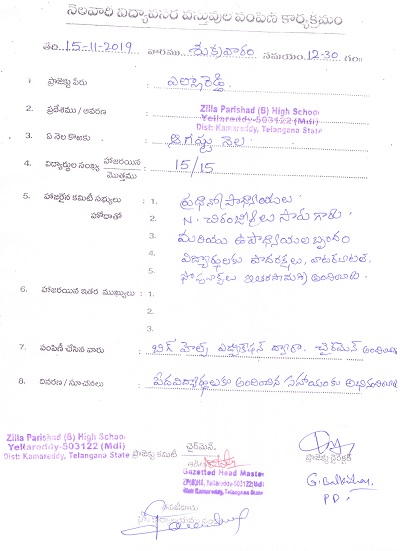 నెలవారి విద్యావసర వస్తువుల పంపిణీ కార్యక్రమం
తేది: 15-11-2019 వారము శుక్రవారం సమయం: 12-30 గం
1. ప్రాజెక్టు పేరు : ఎల్లారెడ్డి
2. ప్రదేశము / ఆవరణ : Zilla Parishad (B) High School
Yellareddy-503122 (Mdl)
Dist: Kamareddy, Telangana State
3. ఏ నెల కొఱకు : ఆగస్టు నెల
4. విద్యార్థుల సంఖ్య హాజరయిన / మొత్తము : 15/15
5. హాజరైన కమిటీ సభ్యులు : 1. ప్రధానోపాధ్యాయులు
హోదాతో 2. N. చిరంజీవులు సారు గారు
3. మరియు ఉపాధ్యాయుల బృందం
4. విద్యార్థులకు పాదరక్షలు, వాటర్ బాటల్
5. నోట్ బుక్‌లు ఇతర సామాగ్రి అందించారు.
6. హాజరయిన ఇతర ముఖ్యులు : 1.
2.
3.
7. పంపిణీ చేసిన వారు : బిగ్ హెల్ప్ ద్వారా. చైర్‌మెన్
8. వివరణ / సూచనలు : పేదవిద్యార్థులకు అందించిన సహాయంకు
Zilla Parishad (B) High School
Yellareddy-503122 (Mdl)
Dist: Kamareddy, Telangana State
ప్రాజెక్టు కమిటీ చైర్‌మెన్.
Gazetted Head Master
Yellareddy-503122 (Mdl)
Dist: Kamareddy, Telangana State
ప్రాజెక్టు డైరెక్టర్
P.D.